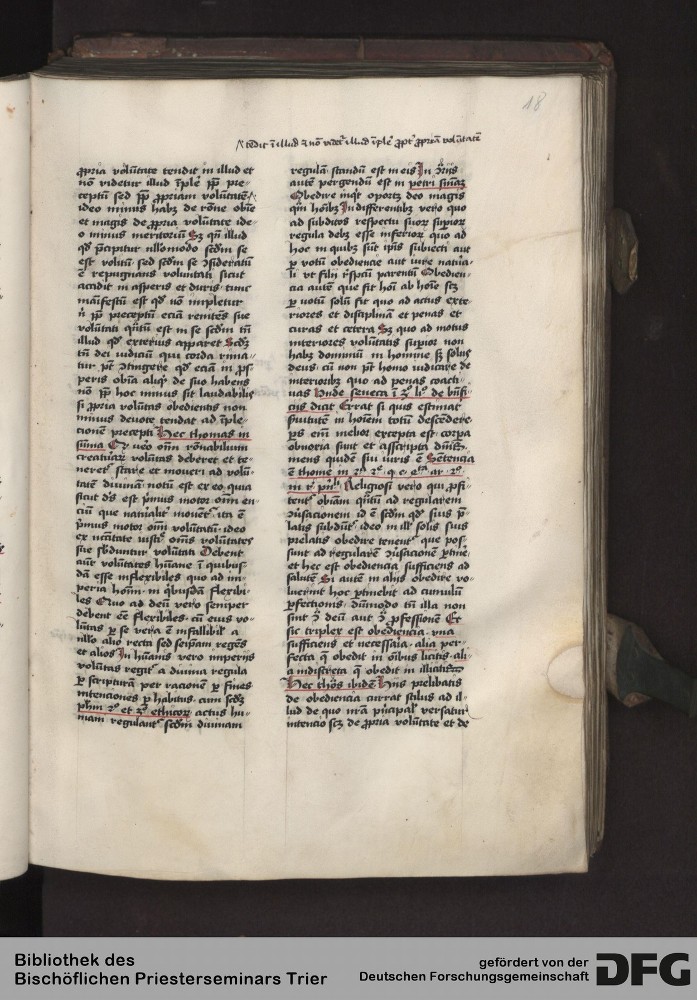 18
tēdit ī illud ⁊ nō videt' illud īple' ꝓpt' ꝓpriā volūtatē
ꝓpria volūtate tendit in illud et
nō videtur illud īple' ꝓp̄ pre-
ceptū sed ꝓp̄ ꝓpriam voluntatē
ideo minus habꝫ de rōne obīe
et magis de ꝓpria volūtate ide
o minus meritoriū Sꝫ qn̄ illud
qd̄ p̄cipitur nullo modo scdm̄ se
est volitū sed scdm̄ se ꝯsideratū
ē repugnans voluntati sicut
accidit in asperis et duris tunc
manifestū est qd̄ nō impletur
n̄ ꝓp̄ preceptū eciā renitēs sue
volūtati qn̄tū est in se scdm̄ tn̄
illud qd̄ exterius apparet Scdꝫ
tn̄ dei iudiciū qui corda rima-
tur pt̄ ꝯtingere qd̄ eciā in ꝓs
peris obīa aliqd̄ de suo habens
nō ꝓp̄ hoc minus sit laudabilis
si ꝓpria volūtas obedientis non
minus devote tendat ad īple-
cionē precepti Hec thomas in
sūma Et vero om̄ rōnabilium
creaturaꝝ voluntas deberet et te-
neret' stare et moveri ad volū-
tatē diuinā notū est ex eo quia
sicut d's est p̄mus motor om̄ en-
ciū que nat'alit' mouēt' ita ē
p̄mus motor om̄ voluntatū ideo
ex nec̄itate iustic̄ om̄s volūtates
sue sbduntur volūtati Debent
aūt volūtates hūane ī quibus-
dā esse inflexibiles quo ad im-
peria hom̄ in q̄busdā flexibi-
les Quo ad deū vero semper
debent eē flexibiles cū eius vo-
lūtas ꝑ se vera ē infallibil' a
nllo alio recta sed seipsam regēs
et alios In hūanis vero imperijs
volūtas regit' a diuina regula
ꝑ scripturā per racionē ꝑ fines
intenciones ꝑ habitus cum scdꝫ
ph̄m 2° et 3° ethicoꝝ actus hu-
mani regulant' scdm̄ diuinam
regulā standū est in eis In ꝯrijs
autē pergendū est in petri sn̄iaꝫ
Obedire inqt oportꝫ deo magis
qn̄ hoībꝫ Indifferentibꝫ vero quo
ad subditos respectu suoꝝ sup̄ioꝝ
regula debꝫ esse inferioꝝ quo ad
hoc in quibꝫ sūt ip̄is subiecti aut
ꝑ votū obediencie aut iure natura-
li vt filij r̄spcū parentū Obedien-
cia autē que fit hōi ab hoīe scꝫ
ꝑ votū solū fit quo ad actus exte-
riores et disciplinā et penas et
curas et cetera Sꝫ quo ad motus
interiores volūtatis sup̄ior non
habꝫ dominiū in homine sꝫ solus
deus cū non pt̄ homo iudicare de
interioribꝫ quo ad penas coacti-
uas Unde seneca ī 3° li° de bn̄fi-
cijs dicit Errat si quis estimat
ſuitutē in hoiem totū descēdere
ꝑs ei' melior excepta est corpa
obnoxia sūt et asscripta dn̄is
mens quidē sui iuris ē Sētencia
ē thome
Religiosi vero qui ꝓfi-
tent' obīam qn̄tū ad regularem
ꝯūsacionem id ē scdm̄ qd̄ suis p̄-
latis subdūt' ideo in ill' solis suis
prelatis obedire tenent' que pos-
sunt ad regularē ꝯūsacionē ꝑtine
et hec est obediencia sufficiens ad
salutē Si autē in alijs obedire vo-
luerint hoc ꝑtinebit ad cumulū
ꝑfectionis dūmodo tn̄ illa non
sint ꝯ deū aut ꝯ ꝓfessionē Et
sic triplex est obediencia vna
sufficiens et necessaria alia per-
fecta q̄ obedit in om̄ibus licitis ali-
a indiscreta q̄ obedit in illicitis
Hec thōs ibidē Hijs prelibatis
de obediencia currat stilus ad il-
lud de quo nr̄a p̄ncipal' versatur
intencio scꝫ de ꝓpria volūtate et de
Bibliothek des
Bischöflichen Priesterseminars Trier
gefördert von der
Deutschen Forschungsgemeinschaft
DFG